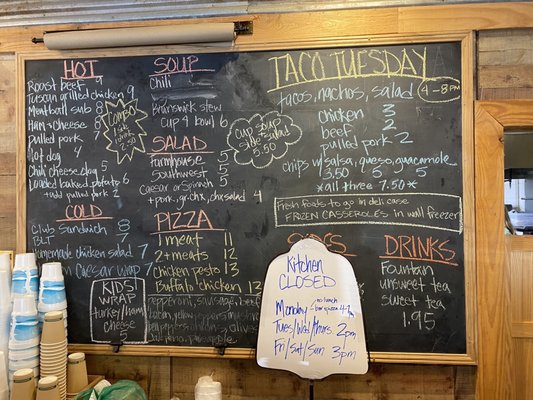 HOT
Roast beef 9
Tuscan grilled chicken 9
Meatball sub 8
Ham & cheese
pulled pork
Hot dog 4
Chili cheese dog 5
Loaded baked potato 6
+ add pulled pork 2
COMBO
1 side
1 drink
COLD
Club Sandwich 8
BLT 7
Homemade chicken salad 7
Caesar wrap 7
KIDS
WRAP
turkey/ham
cheese
3
SOUP
Chili
Brunswick stew
cup 4 bowl 6
Cup Soup
side salad
5.50
SALAD
Farmhouse 5
Southwest 5
Caesar or Spinach 5
+ pork, gr.chx, chx salad 4
PIZZA
1 meat 11
2+ meats 12
Chicken pesto 13
Buffalo chicken 12
pepperoni, sausage, beef
bacon, yellow peppers
TACO TUESDAY
4-8pm
tacos, nachos, salad
Chicken 3
beef 2
pulled pork 2
chips w/ salsa, queso, guacamole
3.50 5 5
*all three 7.50*
Fresh foods to go in deli case
FROZEN CASSEROLES in wall freezer
DRINKS
Fountain
unsweet tea
sweet tea
1.95
Kitchen
CLOSED
Monday - no lunch
Tues/Wed/Thurs 2pm
Fri/Sat/Sun 3pm